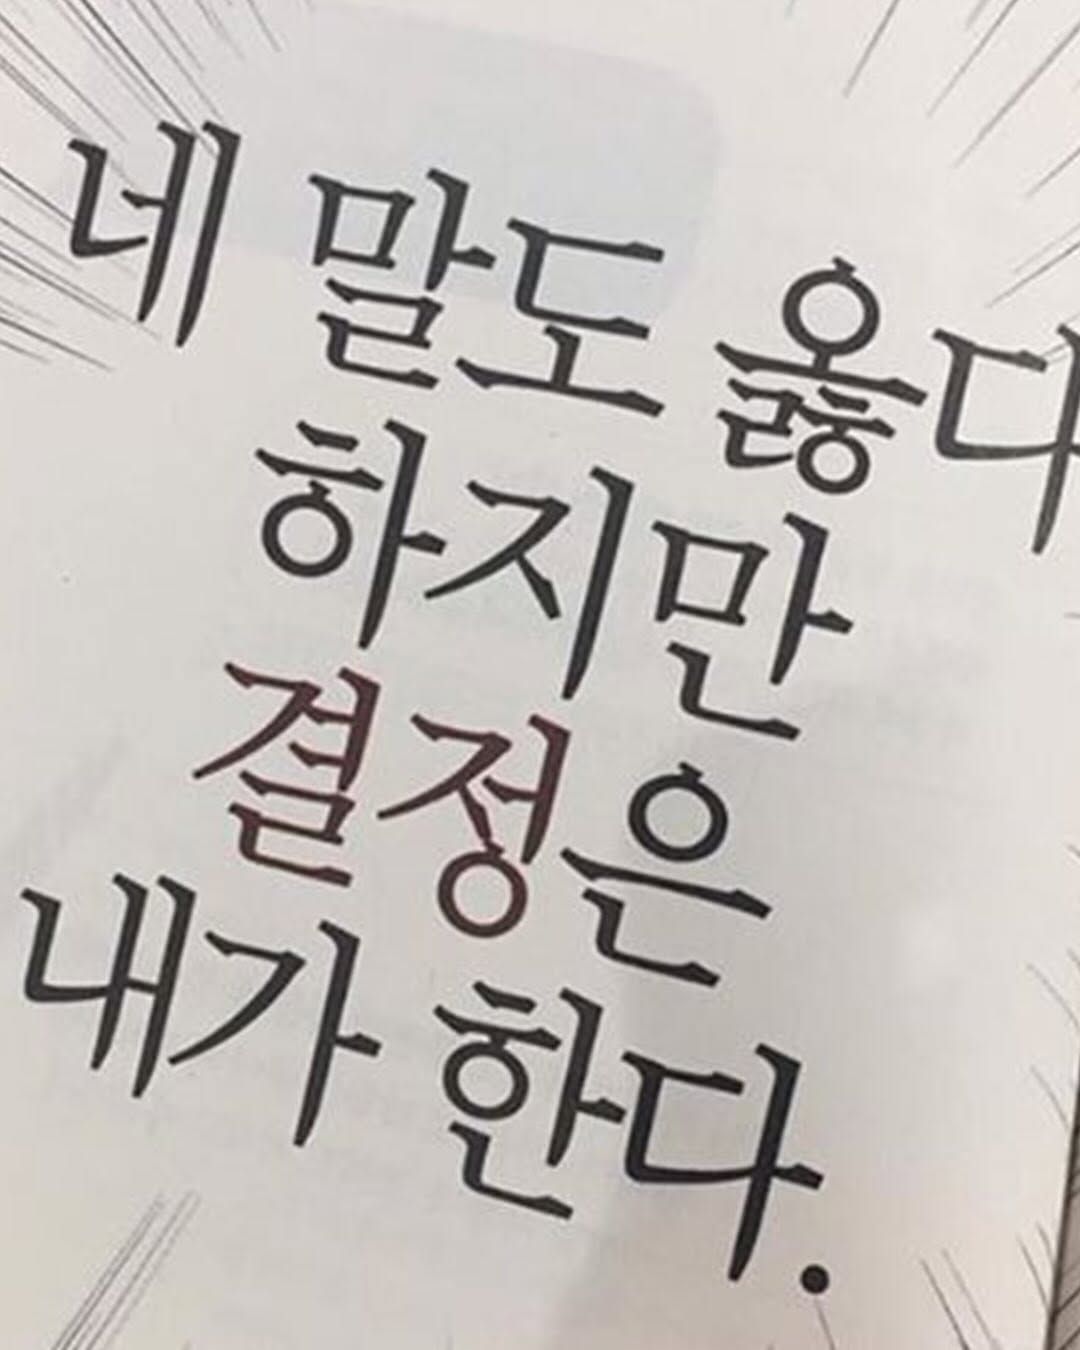 네 말도 옳다
하지만
결정은
내가 한다.